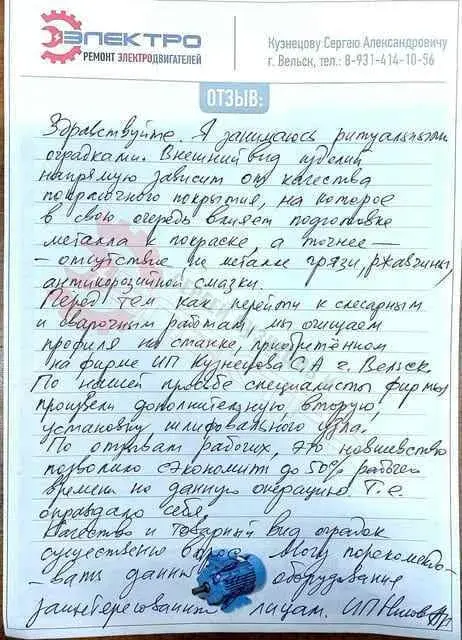 ЭЛЕКТРО
РЕМОНТ ЭЛЕКТРОДВИГАТЕЛЕЙ
Кузнецову Сергею Александровичу
г. Вельск, тел.: 8-931-414-10-56
ОТЗЫВ:
Здравствуйте. Я занимаюсь ритуальными
оградками. Внешний вид изделий
напрямую зависит от качества
покрасочного покрытия, на которое
в свою очередь влияет подготовка
металла к покраске, а точнее —
- отсутствие на металле грязи, ржавчины,
антикорозийной смазки.
Перед тем как перейти к слесарным
и сварочным работам, мы очищаем
профиля на станке, приобретённом
на фирме ИП Кузнецова С.А г. Вельск.
По нашей просьбе специалисты фирмы
произвели дополнительную вторую,
установку шлифовального узла.
По отзывам рабочих, это новшевство
позволило сэкономит до 50% рабочего
времени на данную операцию. Т.е.
оправдало себя.
Качество и товарный вид оградок
существенно вырос. Могу порекомендо-
-вать оборудование
лицам. ИП